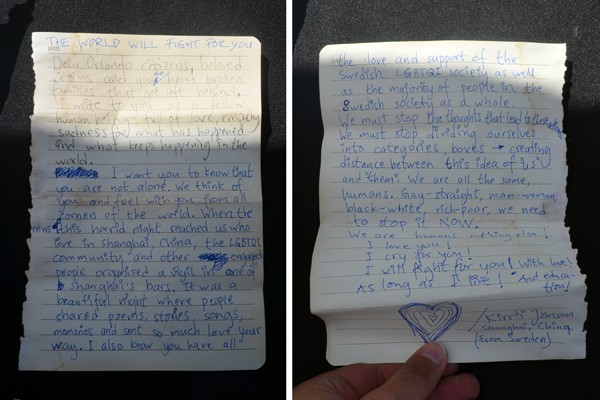 THE WORLD WILL FIGHT FOR YOU
Dear Orlando citizens, beloved
victims and your broken
families that got left behind.
I write to you as a fellow
human being full of love, empathy
sadness for what has happened
and what keeps happening in the
world.
I want you to know that
you are not alone. We think of
you and feel with you from all
corners of the world. When the
news of this horrid night reached us who
live in Shanghai, China, the LGBTQI
community and other engaged
people organised a vigil in one of
Shanghai's bars. It was a
beautiful night where people
shared poems, stories, songs,
memories and sent so much love your
way. I also know you have all
the love and support of the
Swedish LGBTQI society as well
as the majority of people in the
Swedish society as a whole.
We must stop the thoughts that lead to these actions
we must stop dividing ourselves
into categories, boxes → creating
distance between this idea of "us"
and "them". We are all the same,
humans. Gay-straight, man-woman,
black-white, rich-poor, we need
to stop it NOW.
We are humans nothing else!
I love you!
I cry for you!
I will fight for you! With love!
As long as I live! And educa-
tion!
Shanghai, China
(from Sweden)